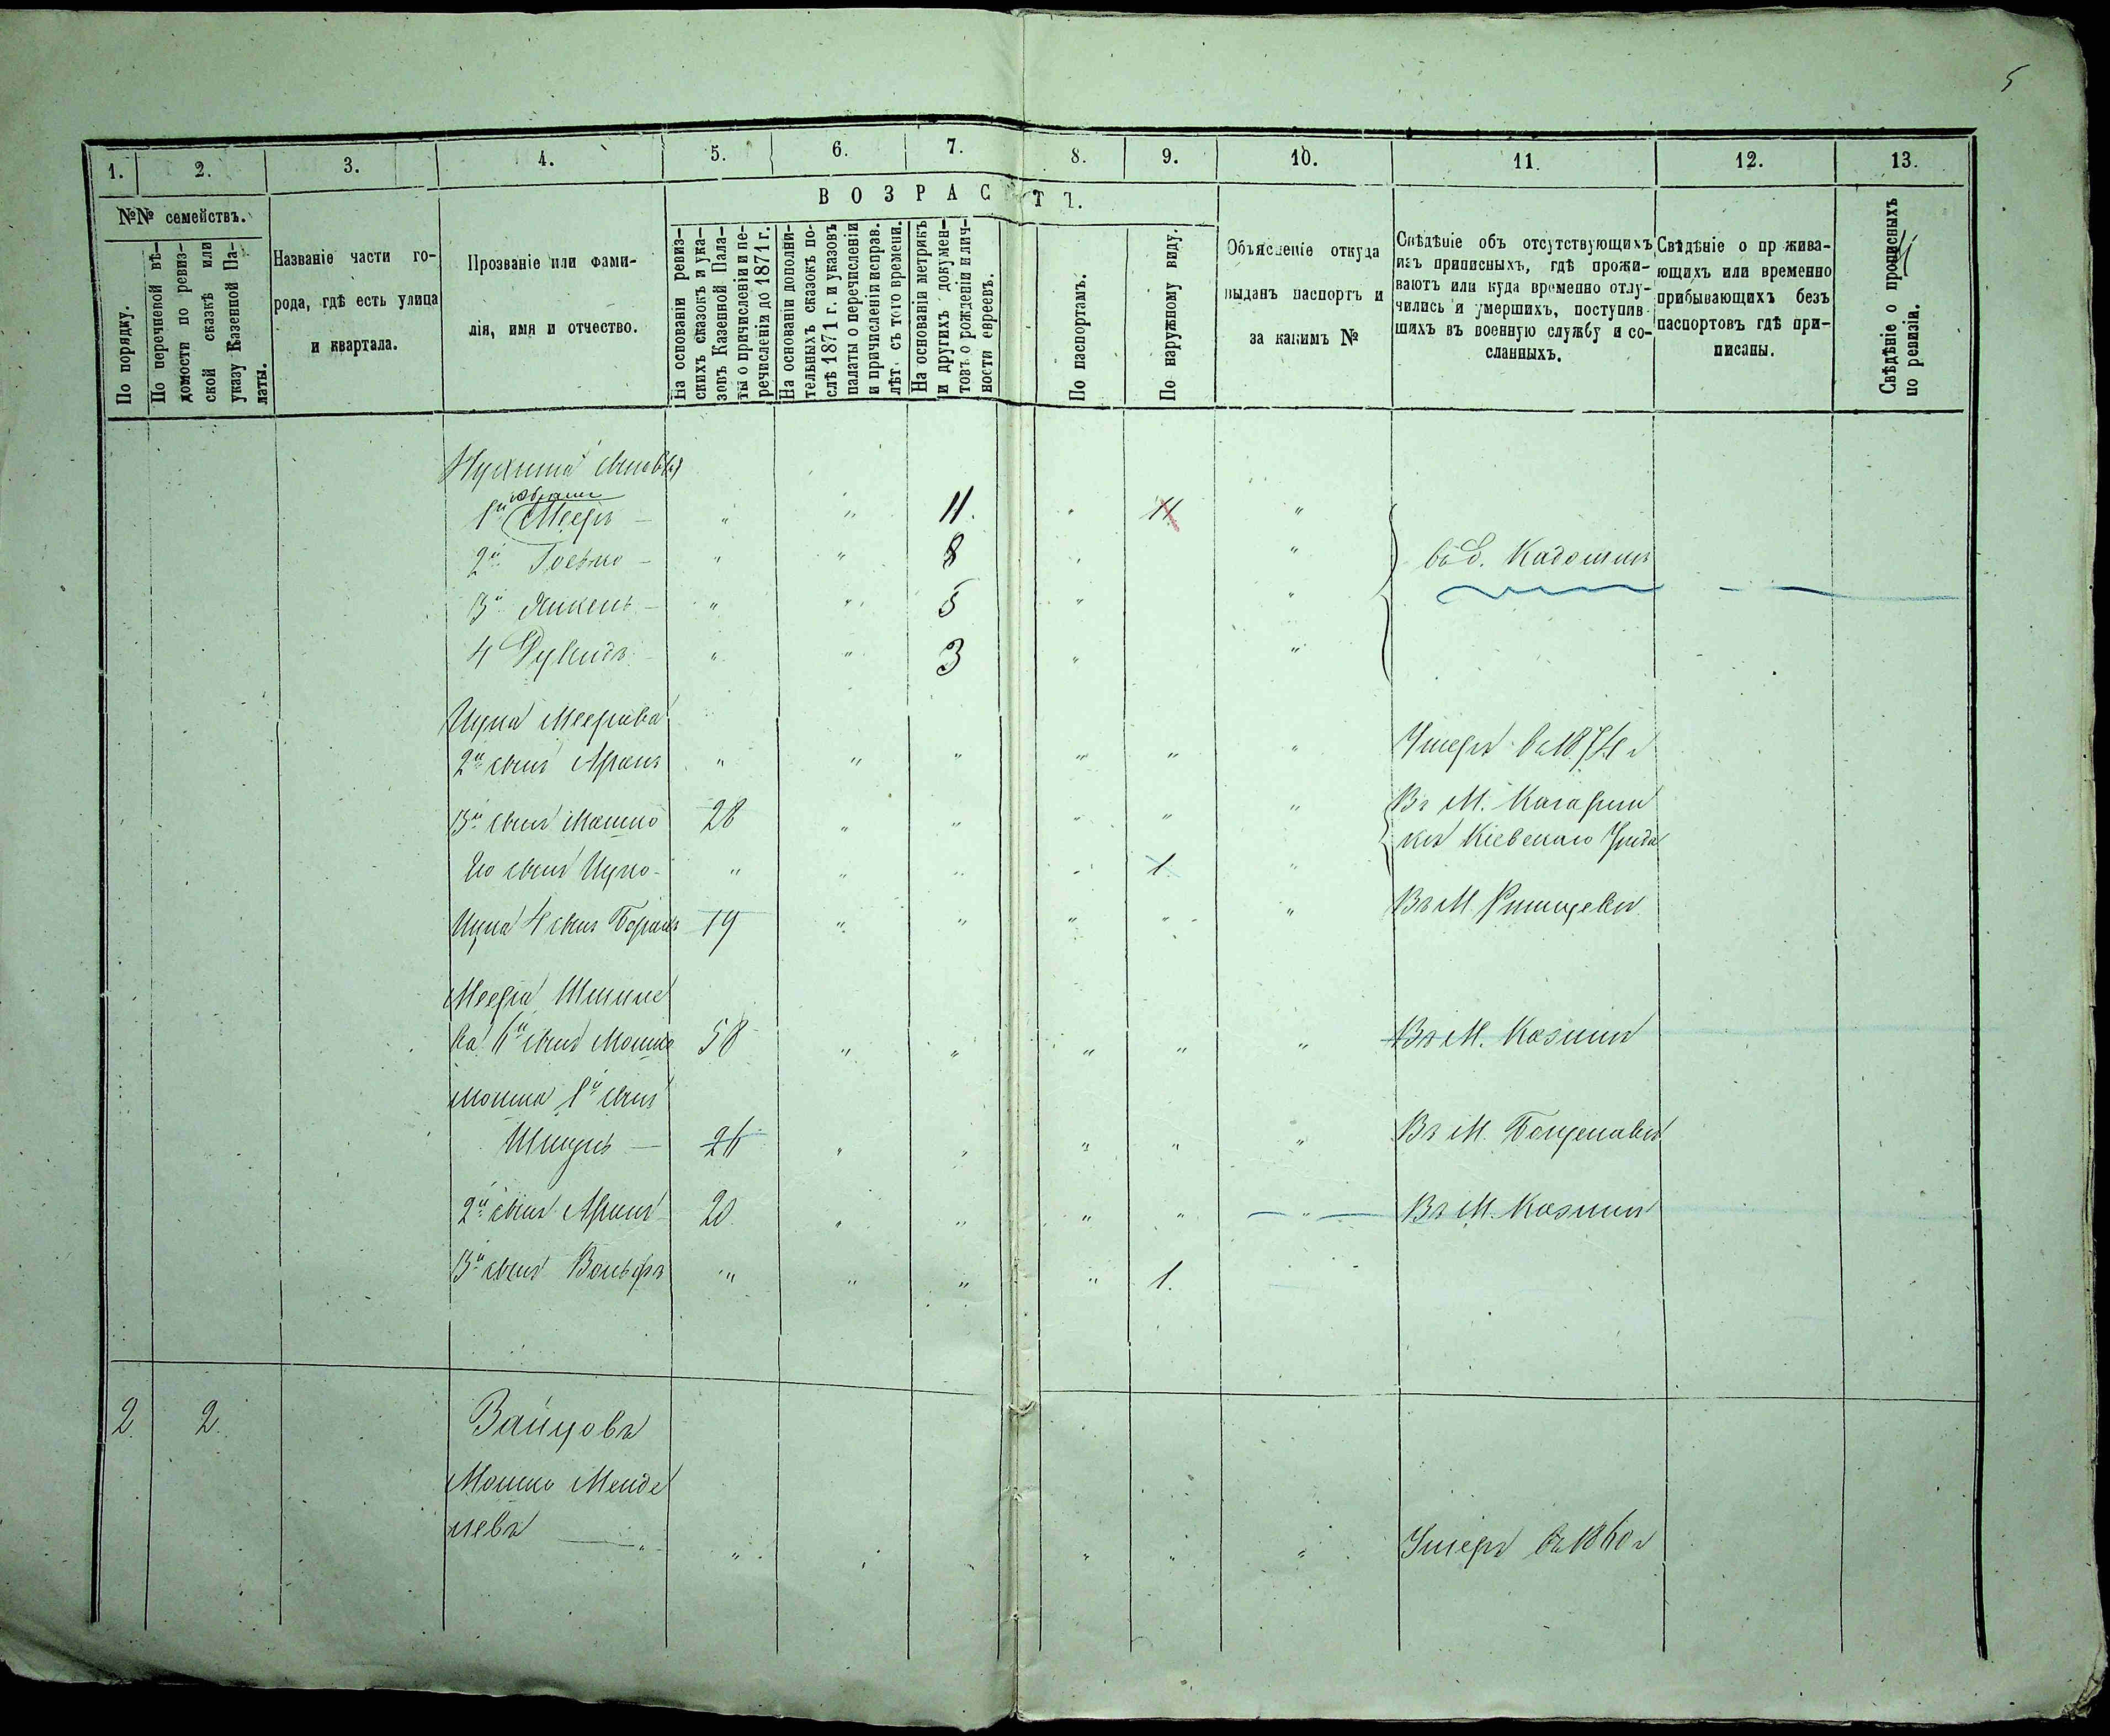 5
1. 2. 3. 4. 5. 6. 7. 8. 9. 10. 11. 12. 13.
№№ семействъ.
По порядку.
По перечневой вѣ-
домости по ревиз-
ской сказкѣ или
указу Казенной Па-
латы.
Названіе части го-
рода, гдѣ есть улица
и квартала.
Прозваніе или фами-
лія, имя и отчество.
ВОЗРАСТЪ.
На основаніи ревиз-
скихъ сказокъ и ука-
зовъ Казенной Пала-
ты о причисленіи и пе-
речисленіи до 1871 г.
На основаніи дополни-
тельныхъ сказокъ по-
слѣ 1871 г. и указовъ
палаты о перечисленіи
и причисленіи исправ.
лѣт. съ того времени.
На основаніи метрикъ
и другихъ докумен-
товъ о рожденіи и лич-
ности евреевъ.
По паспортамъ.
По наружному виду.
Объясненіе откуда
выданъ паспортъ и
за какимъ №
Свѣдѣніе объ отсутствующихъ
изъ приписныхъ, гдѣ прожи-
ваютъ или куда временно отлу-
чились и умершихъ, поступив-
шихъ въ военную службу и со-
сланныхъ.
Свѣдѣніе о прожива-
ющихъ или временно
прибывающихъ безъ
паспортовъ гдѣ при-
писаны.
Свѣдѣніе о прописныхъ
по ревизіи.
сыновья
1й Мееръ 11 11
2й 8
3й 5
4 Дувидъ 3
Ицка Меерова
2й сынъ Аронъ Умеръ въ 1874 г
3й сынъ Мошко 28 Въ М. Кагарлы
кѣ Кіевскаго Уезда
Его сынъ Ицко 1
Ицка 4 сынъ 19 Въ М. Ржищевѣ
Меера
ва 6й сынъ Мошко 58 Въ М. Козинѣ
Мошка 1й сынъ
Шмуль 26 Въ М.
2й сынъ Аронъ 20 Въ М. Козинѣ
3й сынъ Вольфъ 1.
2. 2. Зайцовъ
Мошко Менде
левъ Умеръ въ 1860 г